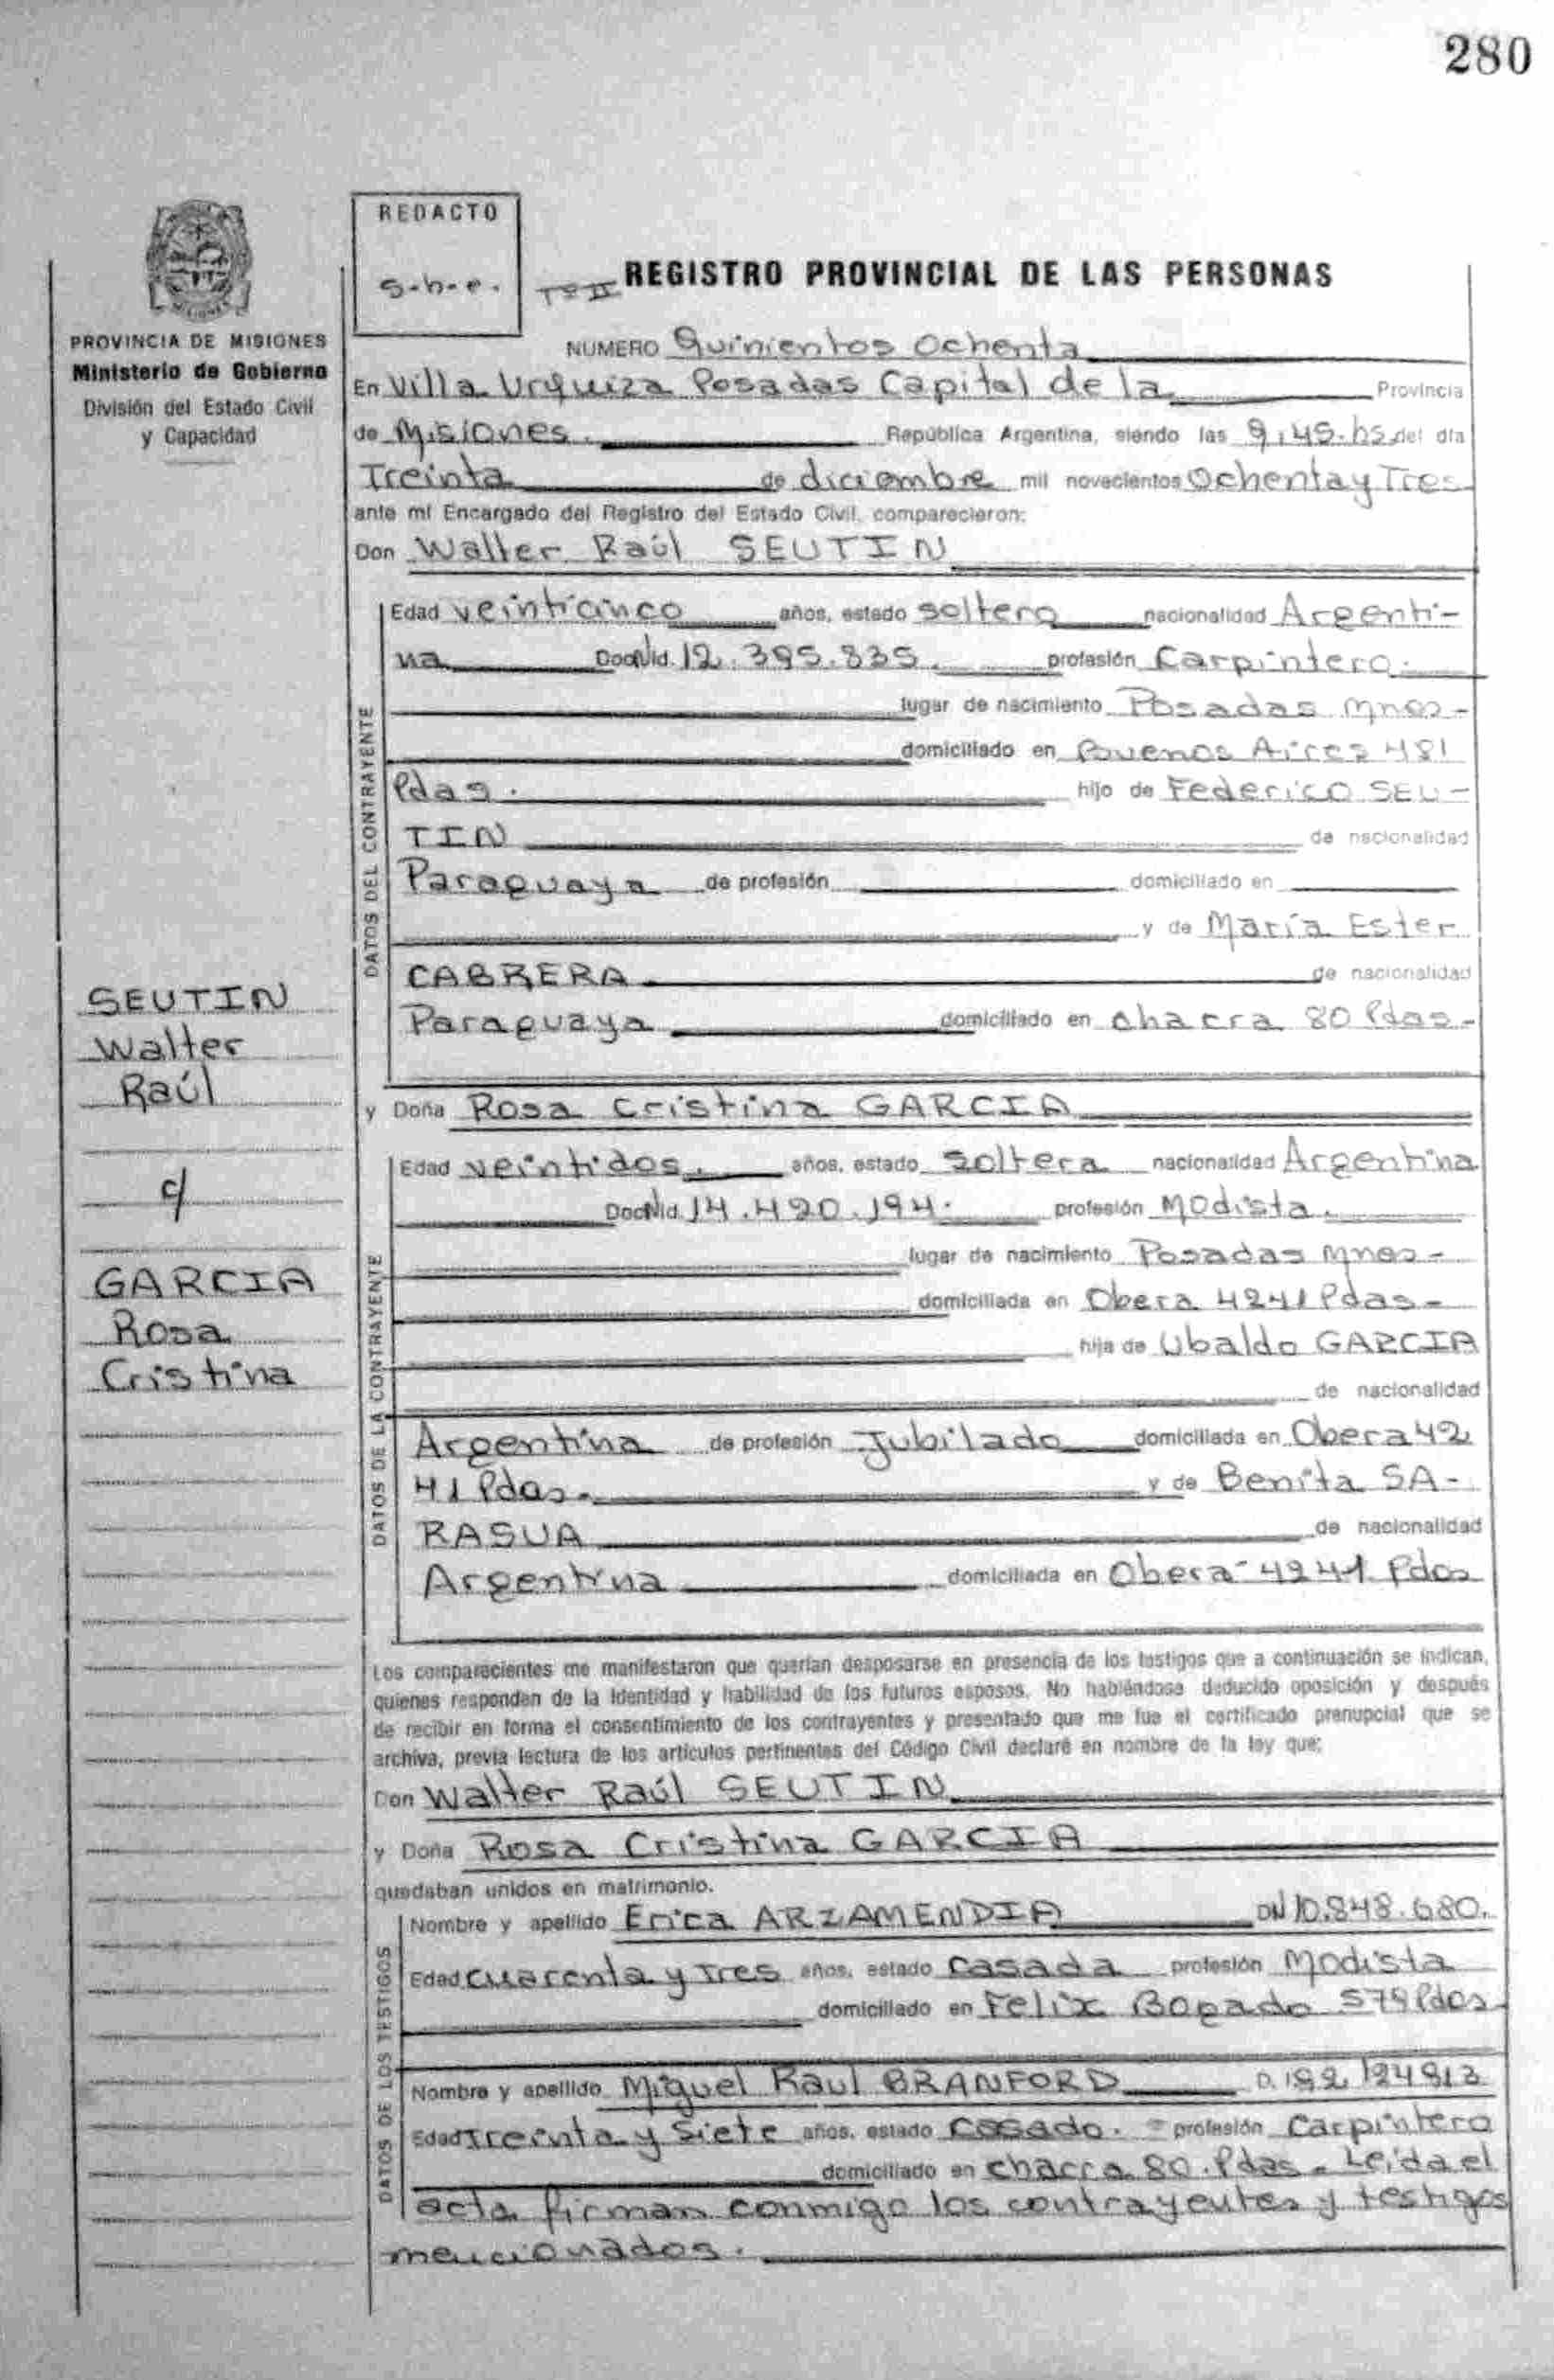 280
REDACTO
S-h-e.
Tº II REGISTRO PROVINCIAL DE LAS PERSONAS
PROVINCIA DE MISIONES
Ministerio de Gobierno
División del Estado Civil
y Capacidad
NUMERO Quinientos Ochenta
En Villa Urquiza Posadas Capital de la Provincia
de Misiones. República Argentina, siendo las 9,45.hs del día
Treinta de diciembre mil novecientos Ochenta y Tres
ante mí Encargado del Registro del Estado Civil, comparecieron:
Don Walter Raúl SEUTIN
DATOS DEL CONTRAYENTE
Edad veinticinco años, estado soltero nacionalidad Argenti-
na Doc. Nid. 12.395.835. profesión Carpintero.
lugar de nacimiento Posadas Mnes-
domiciliado en Buenos Aires 481
Pdas. hijo de Federico SEU-
TIN de nacionalidad
Paraguaya de profesión domiciliado en
y de María Ester
CABRERA de nacionalidad
Paraguaya domiciliado en chacra 80 Pdas-
SEUTIN
Walter
Raúl
c/
GARCIA
Rosa
Cristina
y Doña Rosa Cristina GARCIA
DATOS DE LA CONTRAYENTE
Edad veintidos. años, estado Soltera nacionalidad Argentina
Doc. Nid. 14.420.194. profesión Modista.
lugar de nacimiento Posadas Mnes-
domiciliada en Obera 4241 Pdas-
hija de Ubaldo GARCIA
de nacionalidad
Argentina de profesión Jubilado domiciliada en Obera 42
41 Pdas. y de Benita SA-
RASUA de nacionalidad
Argentina domiciliada en Obera 4241 Pdas
Los comparecientes me manifestaron que querían desposarse en presencia de los testigos que a continuación se indican,
quienes responden de la identidad y habilidad de los futuros esposos. No habiéndose deducido oposición y después
de recibir en forma el consentimiento de los contrayentes y presentado que me fue el certificado prenupcial que se
archiva, previa lectura de los artículos pertinentes del Código Civil declaré en nombre de la ley que:
Don Walter Raúl SEUTIN
y Doña Rosa Cristina GARCIA
quedaban unidos en matrimonio.
DATOS DE LOS TESTIGOS
Nombre y apellido Erica ARZAMENDIA DNI 10.848.680.
Edad cuarenta y Tres años, estado Casada profesión Modista
domiciliado en Felix Bogado 579 Pdas
Nombre y apellido Miguel Raul BRANFORD
Edad Treinta y Siete años, estado Casado. profesión Carpintero
domiciliado en chacra 80. Pdas. Leida el
acta firman conmigo los contrayentes y testigos
mencionados.